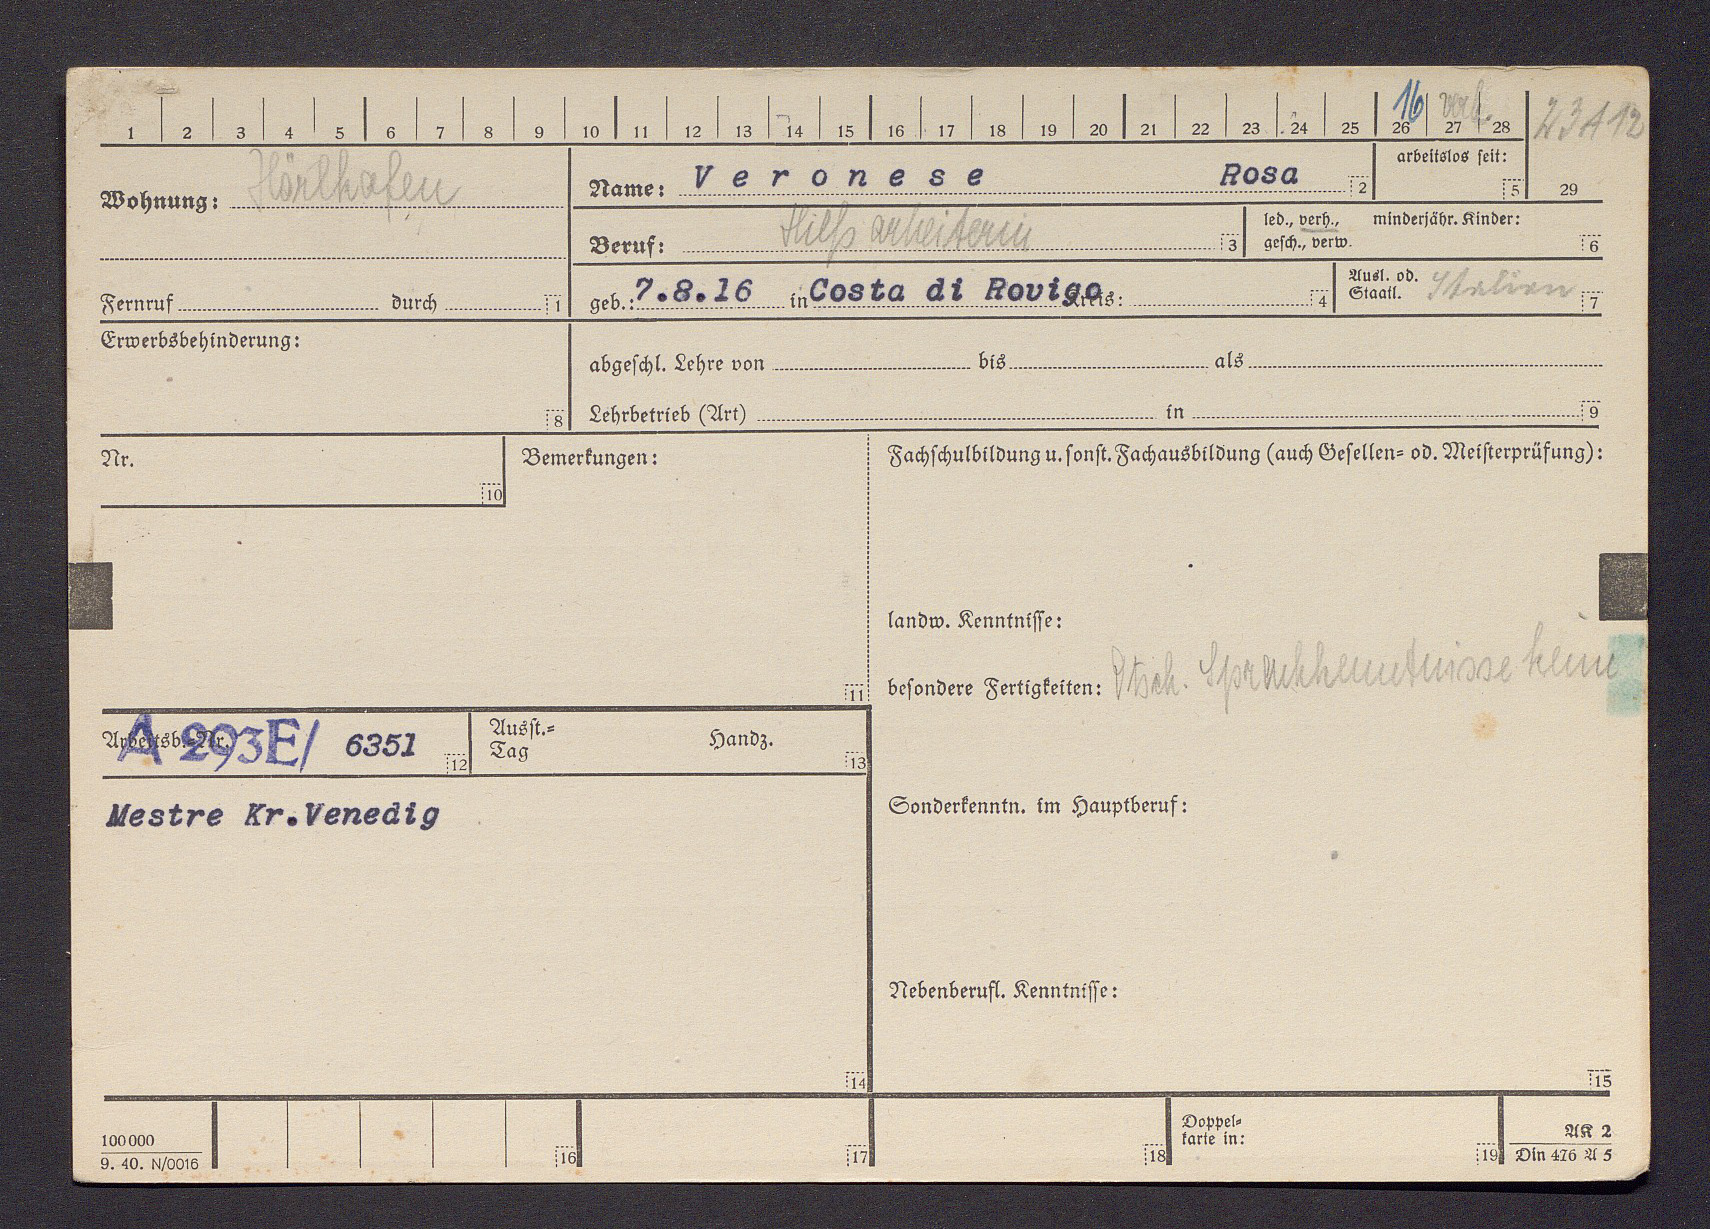 1 2 3 4 5 6 7 8 9 10 11 12 13 14 15 16 17 18 19 20 21 22 23 24 25 26 27 28
16 verh. 23 A 12
Wohnung: Hörlkofen
Name: Veronese Rosa 2
arbeitslos seit: 5
29
Beruf: Hilfsarbeiterin 3
led., verh., minderjähr. Kinder:
gesch., verw. 6
Fernruf durch 1
geb.: 7.8.16 in Costa di Rovigo Kreis: 4
Ausl. od.
Staatl. Italien 7
Erwerbsbehinderung: 8
abgeschl. Lehre von bis als
Lehrbetrieb (Art) in 9
Nr. 10
Bemerkungen: 11
Fachschulbildung u. sonst. Fachausbildung (auch Gesellen= od. Meisterprüfung):
landw. Kenntnisse:
besondere Fertigkeiten: Dtsch. Sprachkenntnisse keine
Arbeitsb.-Nr. A 293E/ 6351 12
Ausst.=
Tag Handz. 13
Mestre Kr.Venedig
14
Sonderkenntn. im Hauptberuf:
Nebenberufl. Kenntnisse:
15
100000
9. 40. N/0016
16 17 18
Doppel=
karte in: 19
AK 2
Din 476 A 5